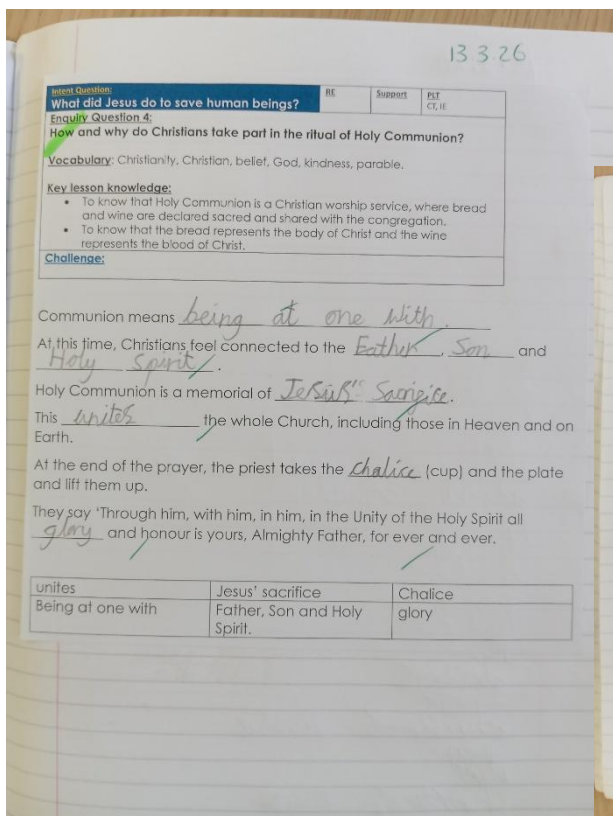 13 3 26
Intent Question:
What did Jesus do to save human beings?
RE
Support
PLT
CT, IE
Enquiry Question 4:
How and why do Christians take part in the ritual of Holy Communion?
Vocabulary: Christianity, Christian, belief, God, kindness, parable.
Key lesson knowledge:
• To know that Holy Communion is a Christian worship service, where bread
and wine are declared sacred and shared with the congregation.
• To know that the bread represents the body of Christ and the wine
represents the blood of Christ.
Challenge:
Communion means being at one with.
At this time, Christians feel connected to the Father, Son and
Holy Spirit.
Holy Communion is a memorial of Jesus' Sacrifice.
This unites the whole Church, including those in Heaven and on
Earth.
At the end of the prayer, the priest takes the chalice (cup) and the plate
and lift them up.
They say 'Through him, with him, in him, in the Unity of the Holy Spirit all
glory and honour is yours, Almighty Father, for ever and ever.
unites
Jesus' sacrifice
Chalice
Being at one with
Father, Son and Holy
Spirit.
glory